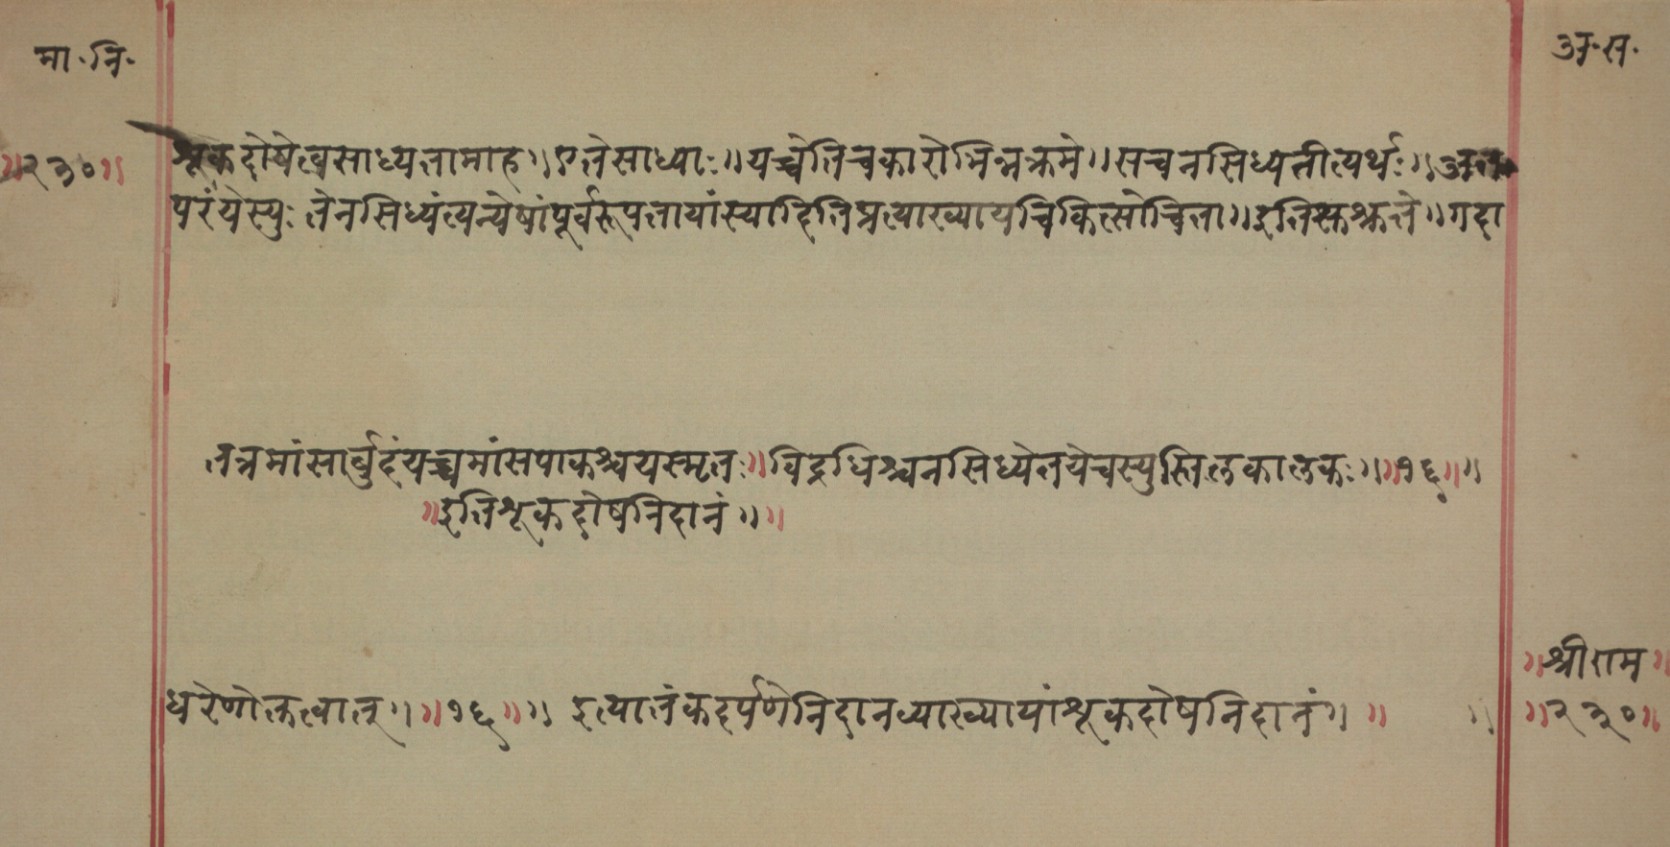 मा·नि·
अ·स·
॥२३०॥
शूकदोषेत्वसाध्यतामाह॥एतेसाध्याः॥यच्चेतिचकारोभिन्नक्रमे॥सचनसिध्यतीत्यर्थः॥अत
परंयेस्युः तेनसिध्यंत्यन्येषांपूर्वरूपतायांस्यादितिप्रत्याख्यायचिकित्सोचिता॥इति गदा
तत्रमांसार्बुदंयच्चमांसपाकश्चयस्मृतः॥विद्रधिश्चनसिध्येतयेचस्युस्तिलकालकः॥॥१६॥॥
॥इतिशूकदोषनिदानं॥॥
॥श्रीराम॥
धरेणोक्तत्वात्॥॥१६॥॥ इत्यातंकदर्पणेनिदानव्याख्यायांशूकदोषनिदानं॥ ॥ ॥
॥२३०॥